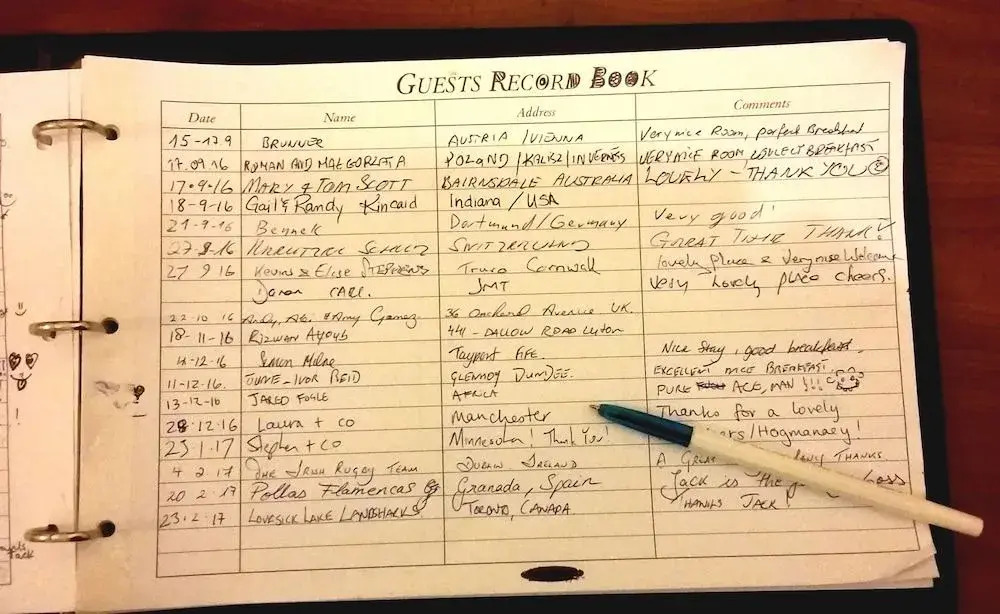 GUESTS RECORD BOOK
Date Name Address Comments
15-17.9 BRUNNER AUSTRIA /VIENNA Very nice Room, perfect Breakfast
17.09.16 ROMAN AND MAŁGORZATA POLAND /KALISZ/ INVERNESS VERY NICE ROOM, BREAKFAST
17-9-16 MARY & TOM SCOTT BAIRNSDALE AUSTRALIA LOVELY - THANK YOU
18-9-16 Gail & Randy Kincaid Indiana / USA
21-9-16 Bennek Dortmund/Germany Very good!
27-9-16 SWITZERLAND GREAT TIME THANKS
27 9 16 Kevin & Elise STEPHENS Truro Cornwall lovely place & Very nice Welcome
CARL. JMT Very Lovely place cheers.
22-10 16 Andy, & Amy Gomez 36 Orchard Avenue UK.
18-11-16 RIZWAN AYOUB 441 - DALLOW ROAD Luton
4-12-16 Simon Milne Tayport FIFE. Nice Stay, good breakfast.
11-12-16. JUNE - IVOR REID DUNDEE. EXCELLENT NICE BREAKFAST.
13-12-16 JARED FOGLE AFRICA PURE ACE, MAN !!!
28.12.16 Laura + co Manchester Thanks for a lovely
/Hogmanay!
23.1.17 Stephen + Co Minnesota! Thank You!
4 2 17 THE IRISH RUGBY TEAM DUBLIN IRELAND A THANKS
20 2 17 Pollas Flamencas Granada, Spain Jack is the Boss
23-2-17 LOVESICK LAKE LANDSHARKS TORONTO, CANADA. THANKS JACK!
Jack